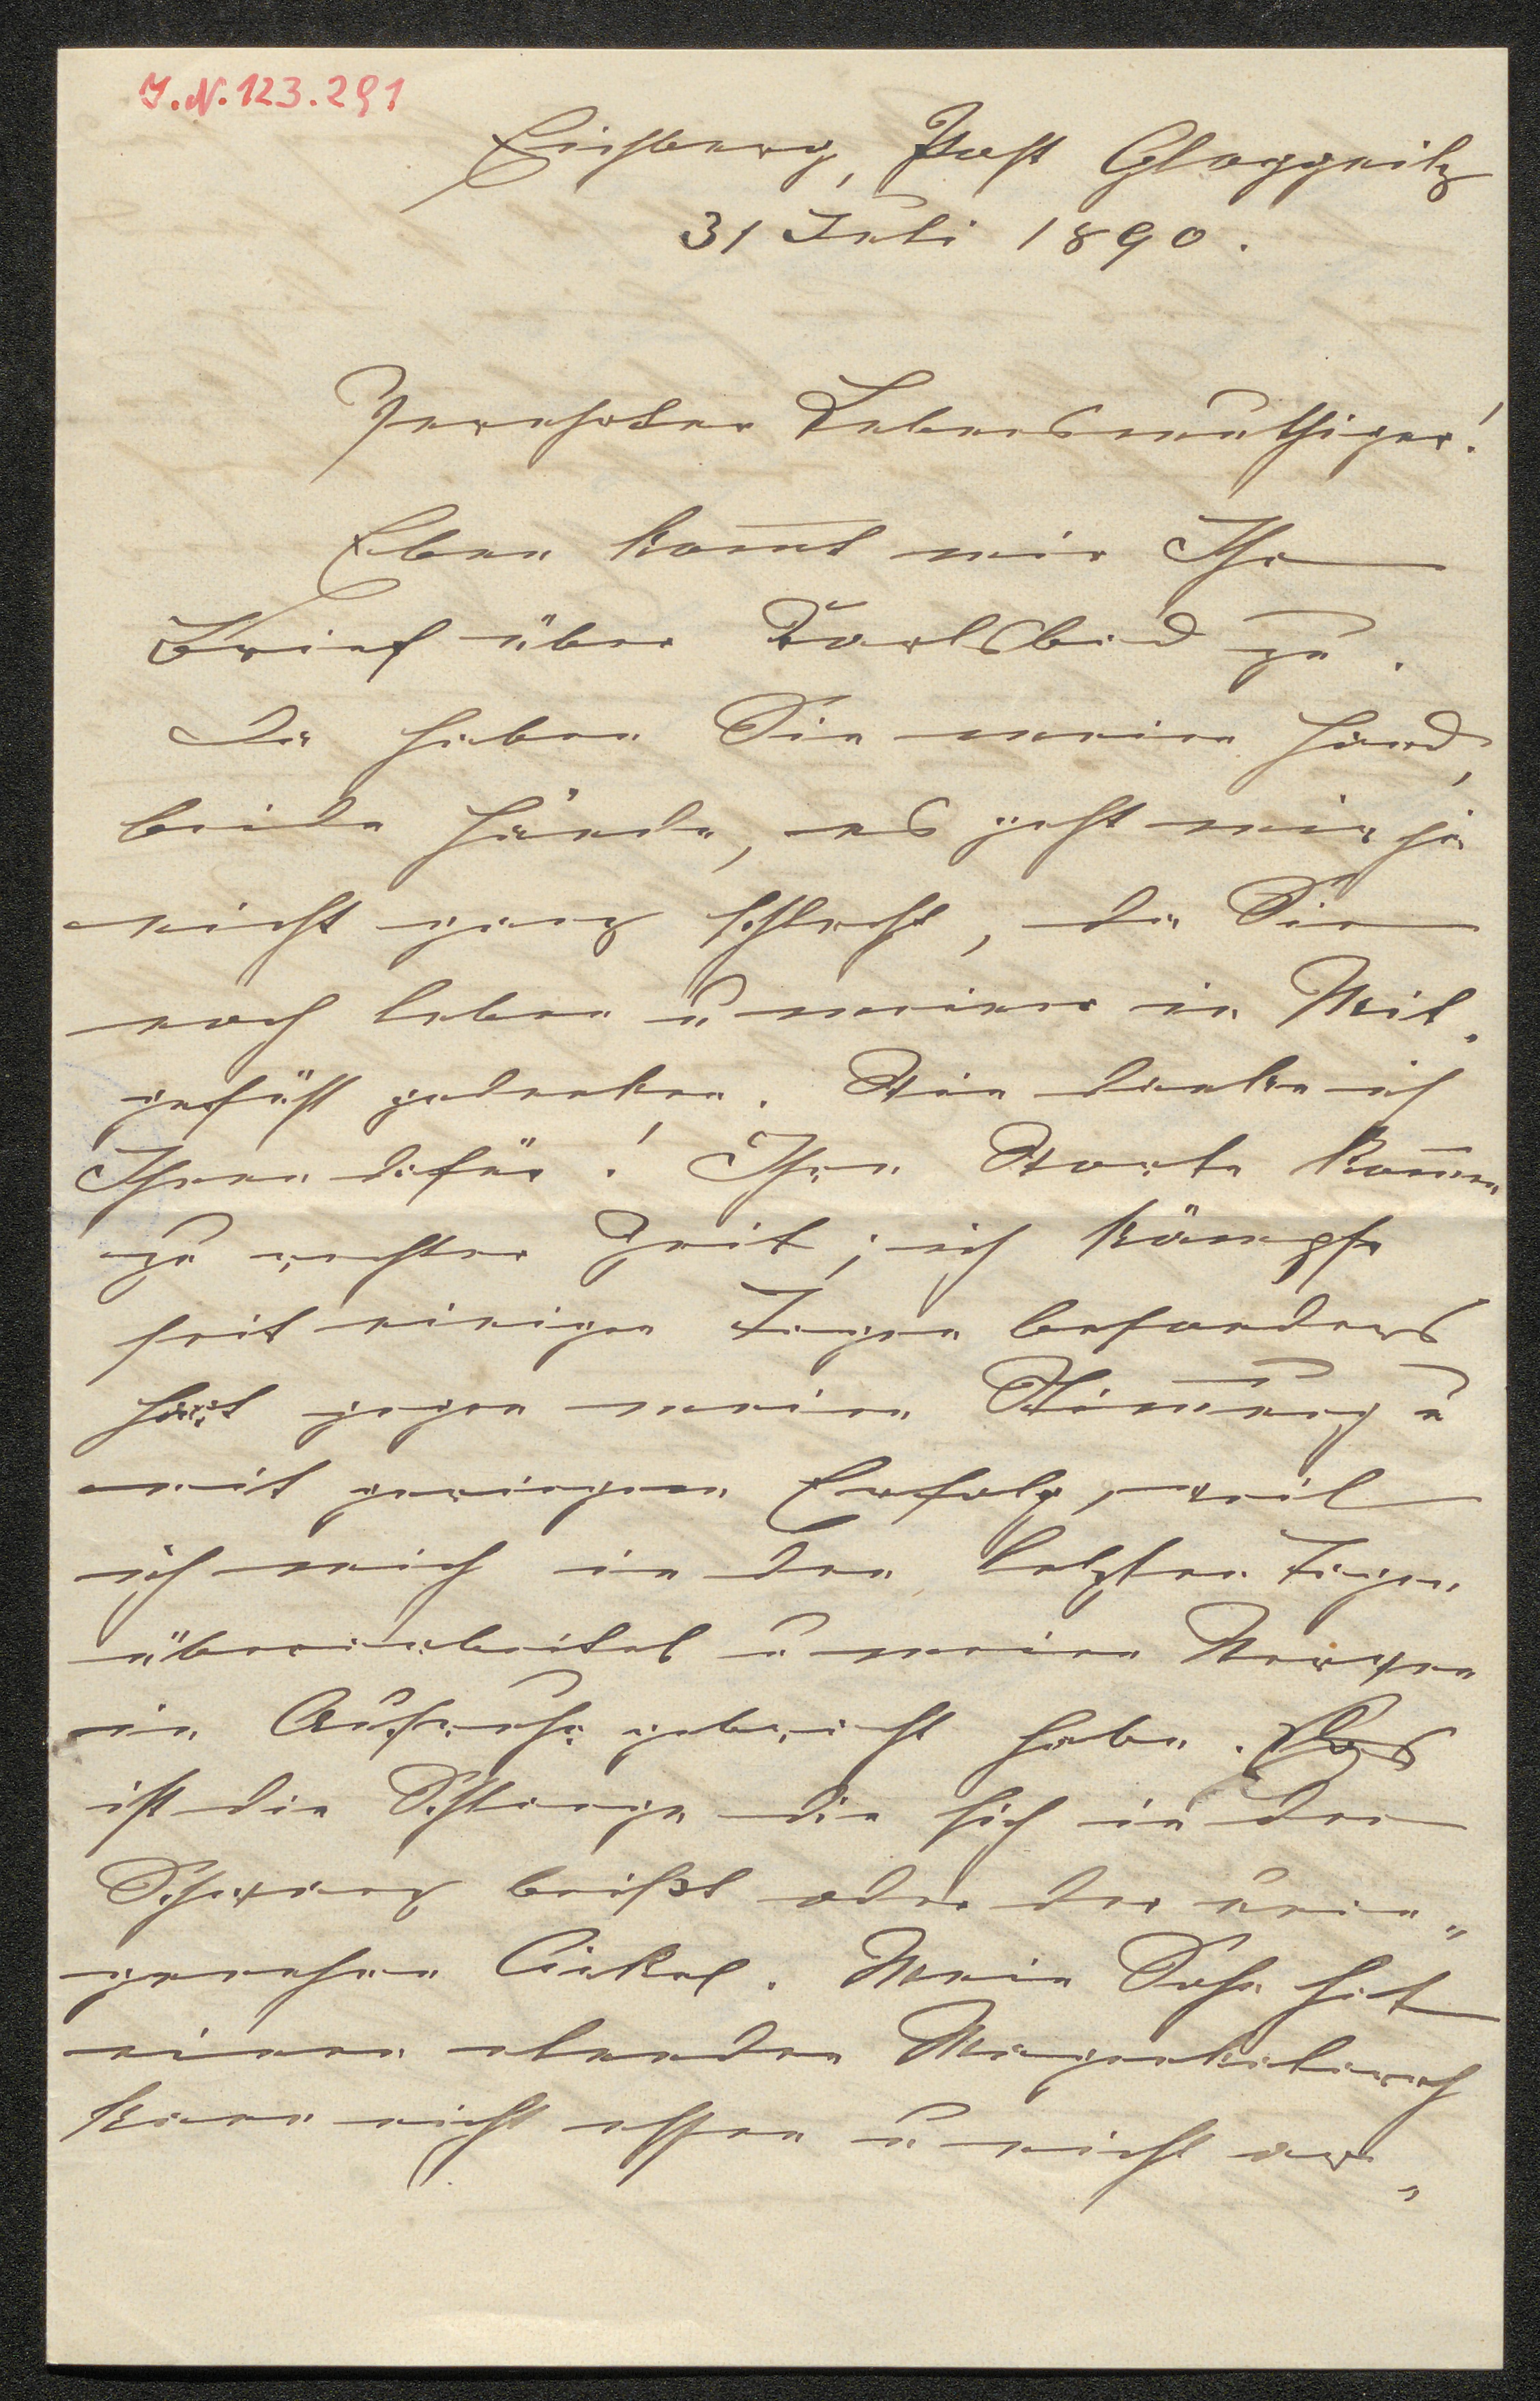 J.N. 123.291
Eichberg, Post Gloggnitz
31 Juli 1890.
Verehrter Lebensmuthiger!
Eben kom̄t mir Ihr
Brief über Karlsbad zu.
Da haben Sie meine Hand,
beide Hände, es geht mir ja
nicht ganz schlecht, da Sie
noch leben u meiner in Mit-
gefühl gedenken. Wie danke ich
Ihnen dafür! Ihre Worte kom̄en
zu rechter Zeit; ich kämpfe
seit einigen Tagen besonders
hart gegen meine Stim̄ung u
mit geringem Erfolg, weil
ich mich in den letzten Tagen
überarbeitet u meine Nerven
in Aufruhr gebracht habe. Das
ist die Schlange die sich in den
Schwanz beißt oder der unan-
genehme Cirkel. Mein Sohn hat
einen elenden Magenkatarrh
kann nicht essen u nicht ar-